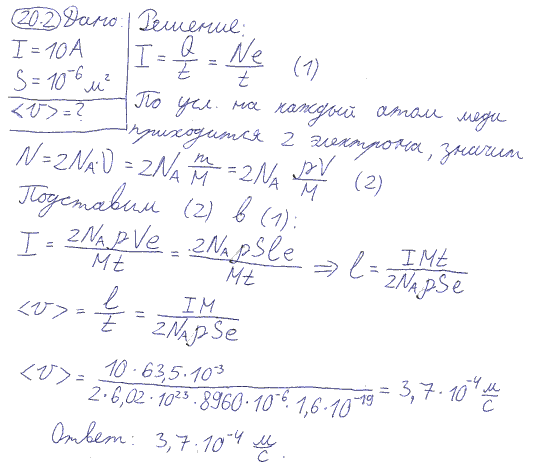 20.2 Дано: Решение:
I = 10 А
S = 10⁻⁶ м²
<v> = ?
I = Q/t = Ne/t (1)
По усл. на каждый атом меди
приходится 2 электрона, значит
N = 2N_A·ν = 2N_A m/M = 2N_A ρV/M (2)
Подставим (2) в (1):
I = 2N_AρVe/Mt = 2N_AρSle/Mt ⇒ l = IMt/2N_AρSe
<v> = l/t = IM/2N_AρSe
<v> = 10·63,5·10⁻³/2·6,02·10²³·8960·10⁻⁶·1,6·10⁻¹⁹ = 3,7·10⁻⁴ м/с
Ответ: 3,7·10⁻⁴ м/с.